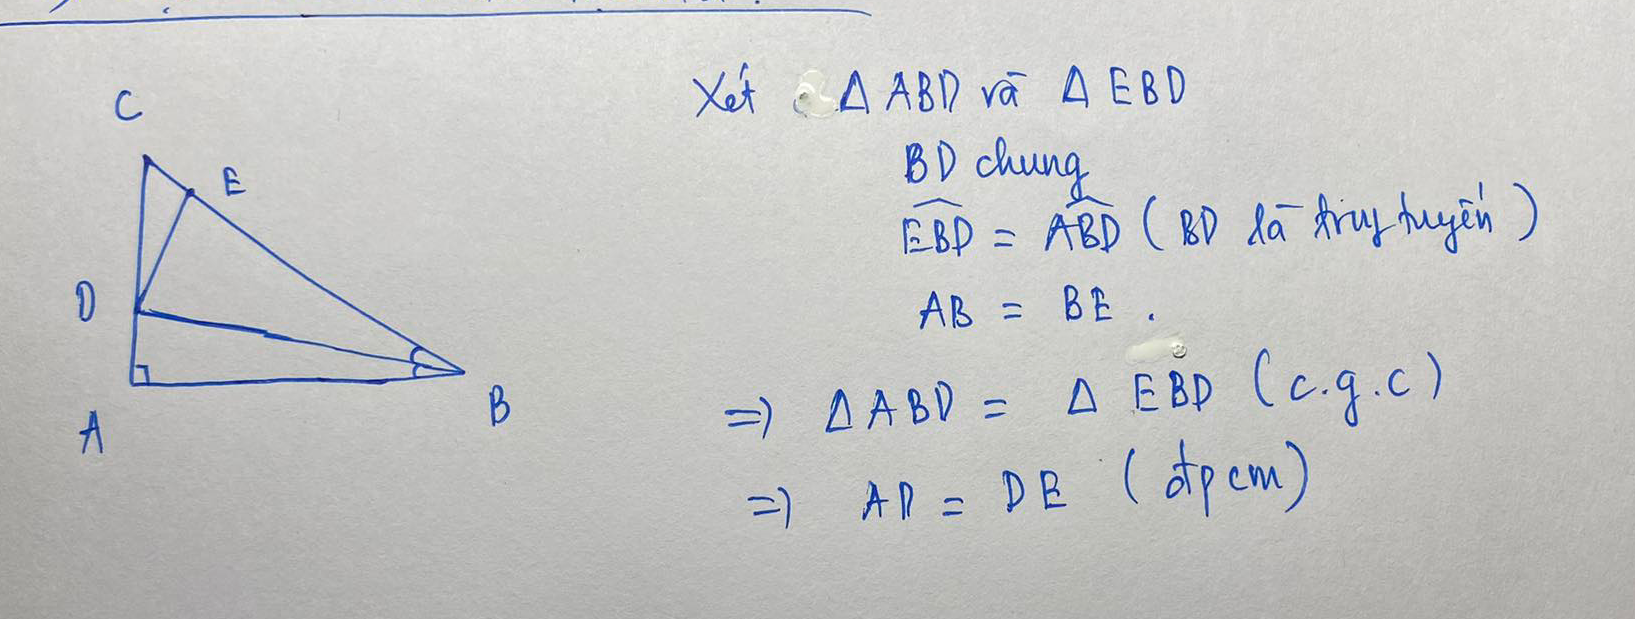 C
E
D
A
B
Xét Δ ABD và Δ EBD
BD chung
\widehat{EBD} = \widehat{ABD} ( BD là trung tuyến )
AB = BE .
=> Δ ABD = Δ EBD ( c.g.c )
=> AD = DE ( đpcm )